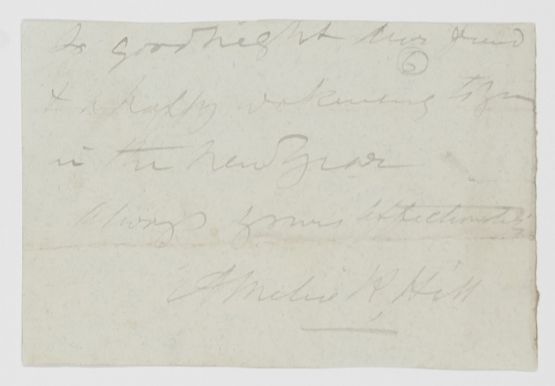 So good night dear friend
6
& a happy wakening to you
in the New Year
Always yours affectionately
Amelia R. Hill